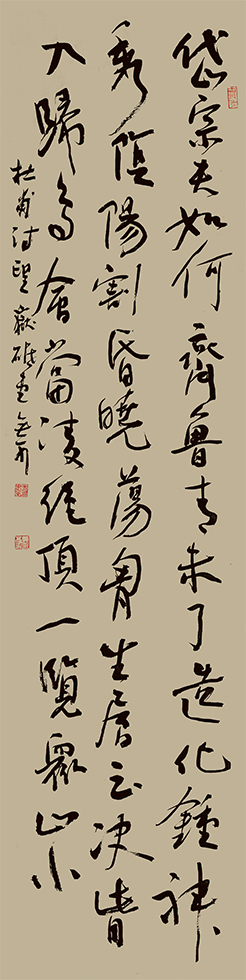 岱宗夫如何齊魯青未了造化鍾神
秀陰陽割昏曉蕩胷生層云決眥
入歸鳥會當凌絕頂一覽眾山小
杜甫詩望嶽